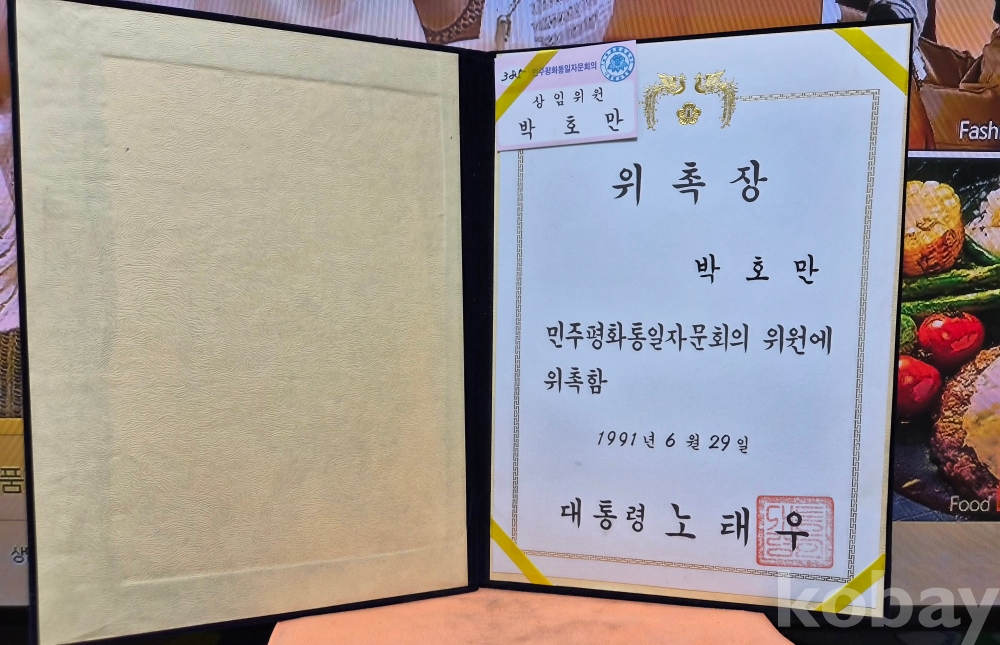 385 민주평화통일자문회의
상임위원
박 호 만
위 촉 장
박 호 만
민주평화통일자문회의 위원에
위촉함
1991년 6월 29일
대통령 노 태 우
Fash
Food
품
kobay